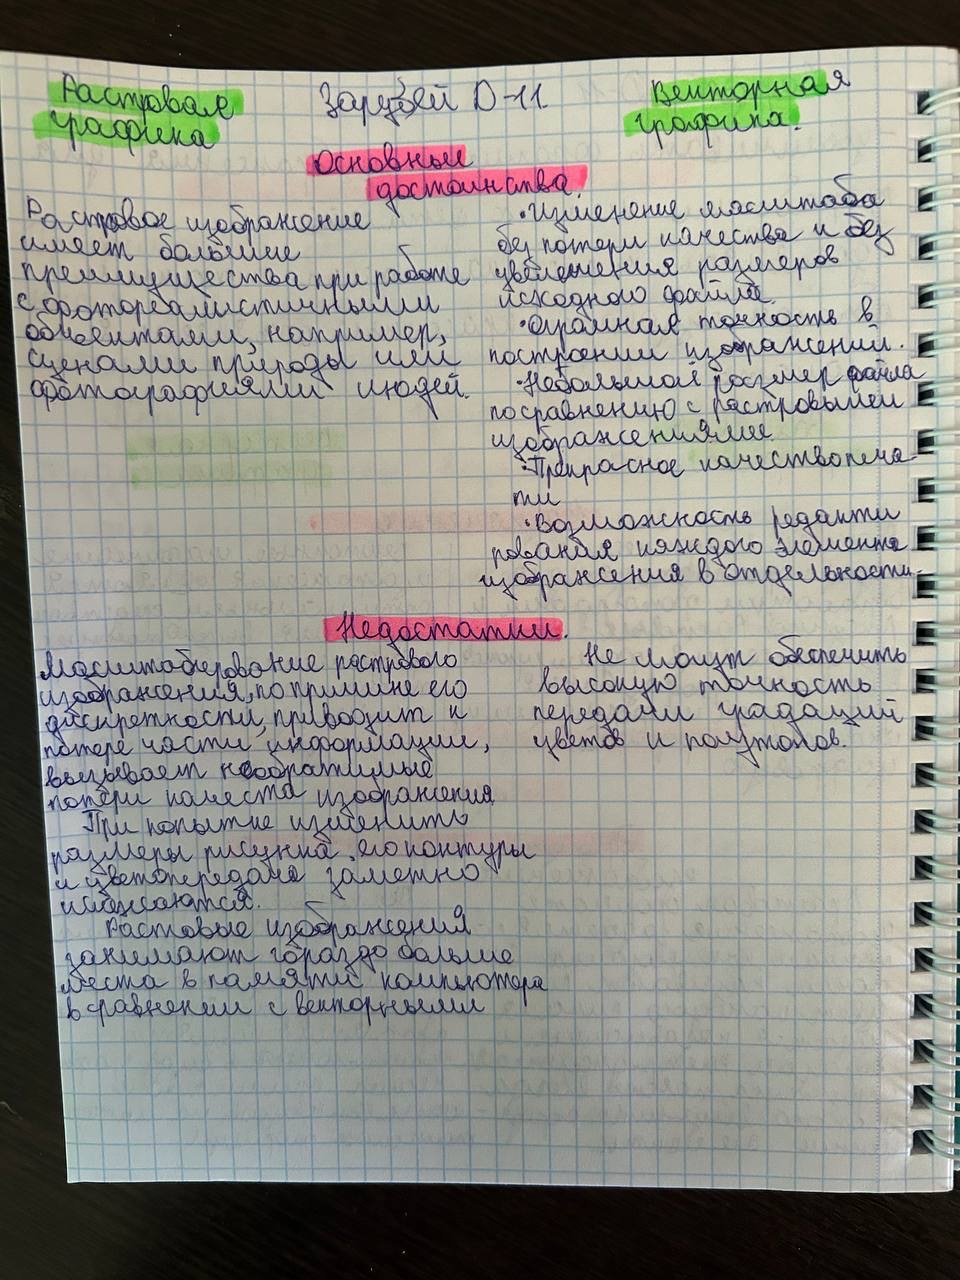 Растровая
графика
Зарубей D-11
Векторная
графика.
Основные
достоинства.
Растровое изображение
имеет большие
преимущества при работе
с фотореалистичными
объектами, например,
сценами природы или
фотографиями людей.
·Изменение масштаба
без потери качества и без
увеличения размеров
исходного файла.
·Огромная точность в
построении изображений.
·Небольшой размер файла
по сравнению с растровыми
изображениями
·Прекрасное качество печа-
ти
·Возможность редакти
рования каждого элемента
изображения в отдельности.
Недостатки.
Масштабирование растрового
изображения, по причине его
дискретности, приводит к
потере части информации,
вызывает необратимые
потери качеста изображения
При попытке изменить
размеры рисунка, его контуры
и цветопередача заметно
искажаются.
Растовые изображения
занимают гораздо больше
места в памяти компьютера
в сравнении с векторными
Не могут обеспечить
высокую точность
передачи градаций
цветов и полутонов.